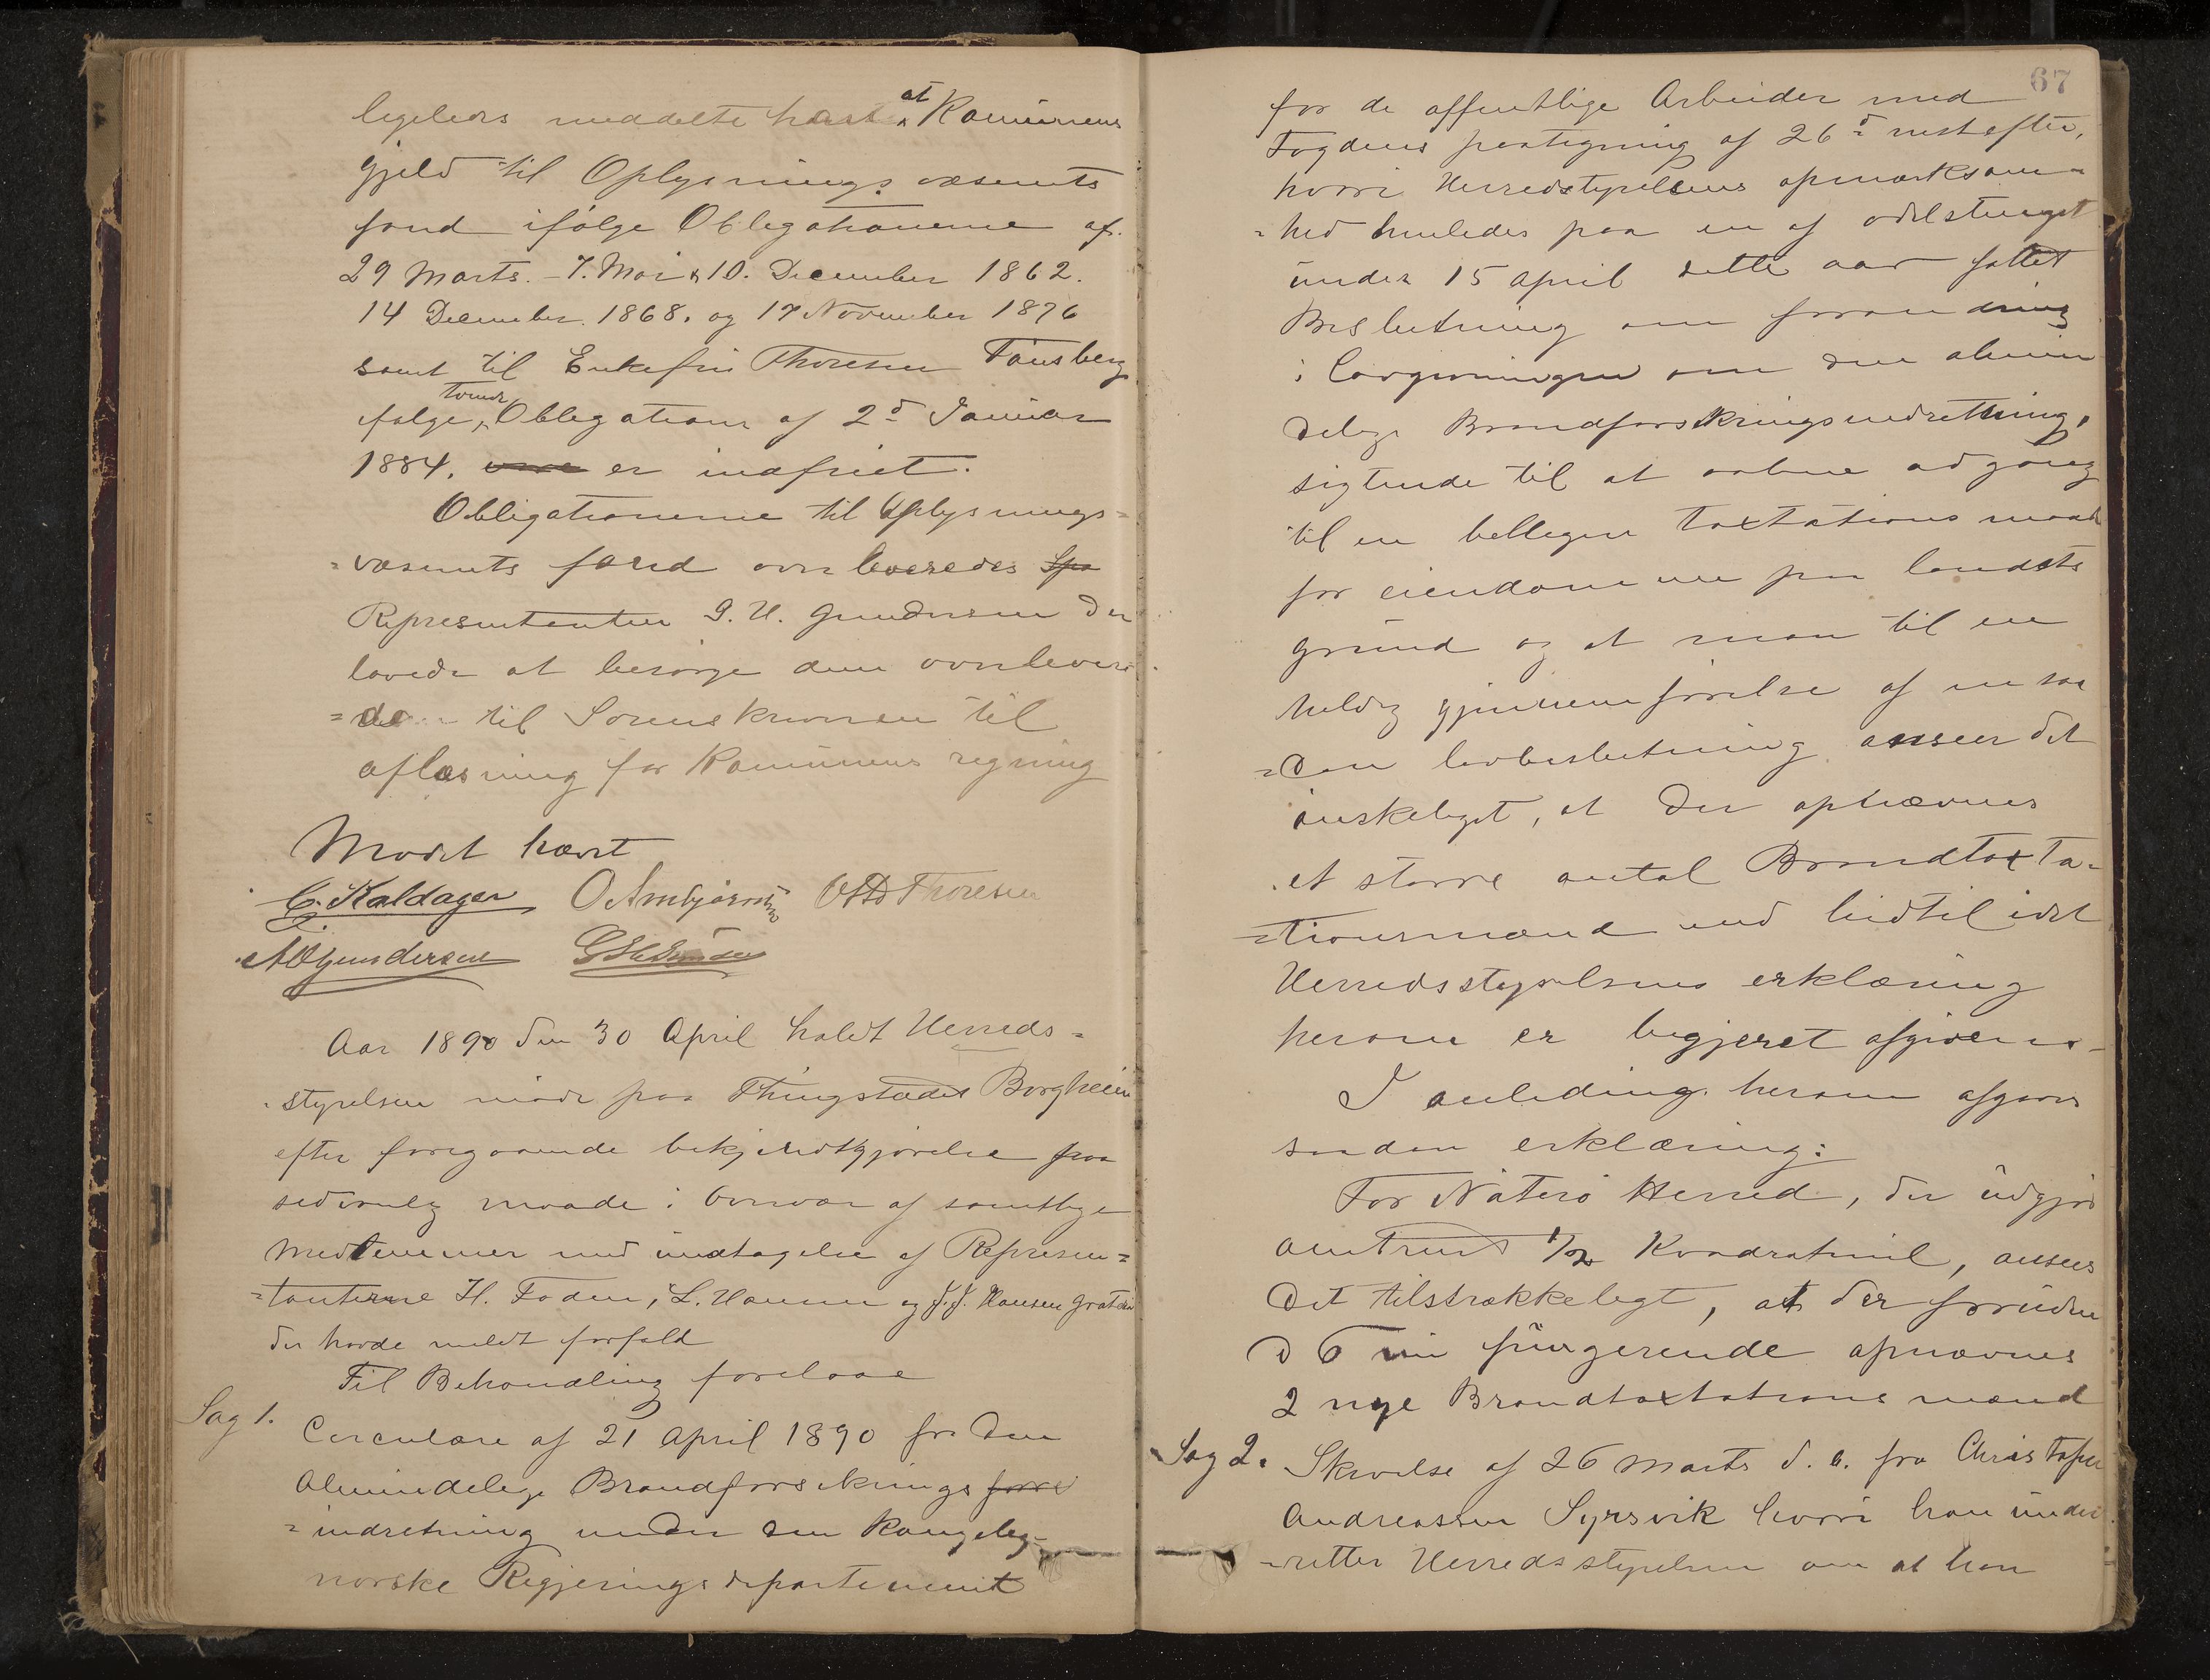 ligeledes meddelte han at Komunens
gjeld til Oplysningsvæsenets
fond ifølge Obligationerne af
29 Marts. - 7. Mai & 10. December 1862.
14 December 1868. og 17 November 1876
samt til Enkefru Thoresen Tønsberg
ifølge tvende Obligationer af 2d Januar
1884. er indfriet.
Obligationerne til Oplysnings=
=væsenets fond overleveredes
Representanten G. H. Gundersen der
lovede at besørge dem overlever
=de til Sorenskriveren til
aflæsning for Komunens regning
Mødet hævet
C. Kaldager O Ambjørnsen Otto Thoresen
A O Gundersen
Aar 1890 den 30 April holdt Herreds=
styrelsen møde paa Thingstedet Borgheim
efter foregaaende bekjendtgjørelse paa
sedvanlig maade i Overvær af samtlige
Medlemmer med undtagelse af Represen=
=tanterne H. Foden, L. Hansen og J. J. Hansen
der havde meldt forfald
Til Behandling forelaae
Sag 1.
Circulære af 21 April 1890 fra den
Almindelige Brandforsikrings
=indretning under den kongelig
norske Regjerings departement
67
for de offentlige Arbeider med
Fogdens paategning af 26d nestefter,
hvori Herredstyrelsens opmærksom=
=hed henledes paa en af odelstinget
under 15 April dette aar fattet
Beslutning om forandring
i Lovgivningen om den almin
delige Brandforsikringsindretning,
sigtende til at aabne adgang
til en billigere taxtations maade
for eiendomme paa landets
grund og at man til en
heldig gjennemførelse af en saa
=dan lovbeslutning anseer det
ønskeligt, at der opnævnes
et større antal Brandtaxta=
=tionsmænd end hidtil idet
Herredsstyrelsens erklæring
herom er begjæret afgiven.
I anledning herom afgaves
saadan erklæring:
For Nøterø Herred, der udgjør
omtrent 1/2 Kvadratmil, ansees
det tilstrækkeligt, at der foruden
d 6 nu fungerende opnævnes
2 nye Brandtaxtations mænd
Sag 2.
Skrivelse af 26 Marts d. a. fra Christofer
Andreassen Syrsvik hvori han under
=retter Herreds styrelsen om at han